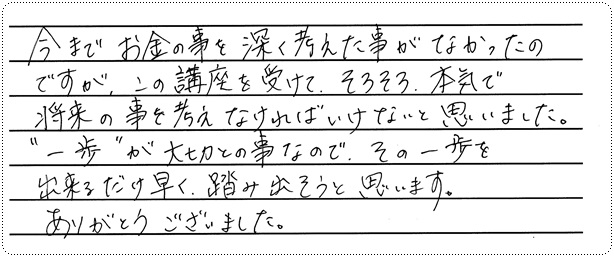 今まで お金の事を 深く考えた事が なかったの
ですが、この講座を受けて、そろそろ、本気で
将来の事を考えなければいけないと思いました。
"一歩"が大切との事なので、その一歩を
出来るだけ早く、踏み出そうと思います。
ありがとうございました。